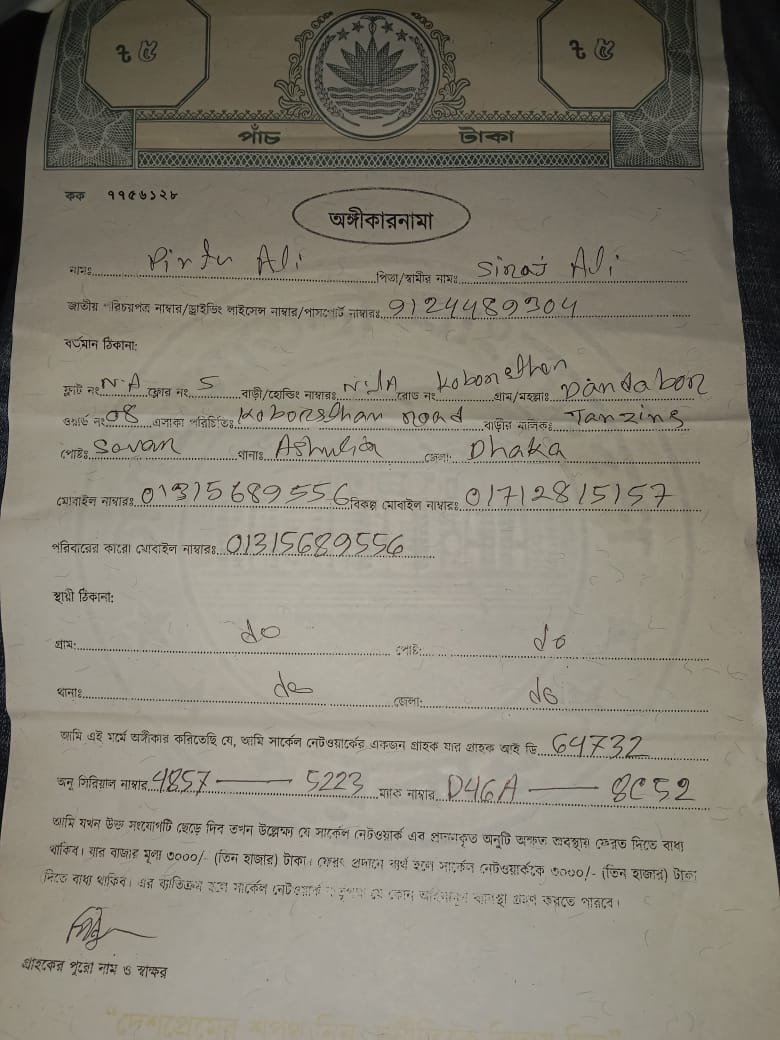 ৳ ৫ ৳ ৫
পাঁচ টাকা
কক ৭৭৫৬১২৮
অঙ্গীকারনামা
নামঃ Pintu Ali পিতা/স্বামীর নামঃ Siraj Ali
জাতীয় পরিচয়পত্র নাম্বার/ড্রাইভিং লাইসেন্স নাম্বার/পাসপোর্ট নাম্বারঃ 9124489304
বর্তমান ঠিকানা:
ফ্লাট নং N.A ফ্লোর নং 5 বাড়ী/হোল্ডিং নাম্বারঃ N/A রোড নং গ্রাম/মহল্লাঃ
ওয়ার্ড নং 08 এলাকা পরিচিতিঃ Road বাড়ীর মালিকঃ
পোষ্টঃ Savar থানাঃ Ashulia জেলা: Dhaka
মোবাইল নাম্বারঃ 01315689556 বিকল্প মোবাইল নাম্বারঃ 01712815157
পরিবারের কারো মোবাইল নাম্বারঃ 01315689556
স্থায়ী ঠিকানা:
গ্রাম: do পোষ্ট: do
থানাঃ do জেলা: do
আমি এই মর্মে অঙ্গীকার করিতেছি যে, আমি সার্কেল নেটওয়ার্কের একজন গ্রাহক যার গ্রাহক আই ডি 64732
অনু সিরিয়াল নাম্বার 4857 — 5223 ম্যাক নাম্বার D46A — 8C52
আমি যখন উক্ত সংযোগটি ছেড়ে দিব তখন উল্লেক্ষ্য যে সার্কেল নেটওয়ার্ক এর প্রদানকৃত অনুটি অক্ষত অবস্থায় ফেরত দিতে বাধ্য
থাকিব। যার বাজার মূল্য ৩০০০/- (তিন হাজার) টাকা। ফেরৎ প্রদানে ব্যর্থ হলে সার্কেল নেটওয়ার্ককে ৩০০০/- (তিন হাজার) টাকা
দিতে বাধ্য থাকিব। এর ব্যতিক্রম হলে সার্কেল নেটওয়ার্ক যে কোন আইনানুগ ব্যবস্থা গ্রহণ করতে পারবে।
গ্রাহকের পুরো নাম ও স্বাক্ষর